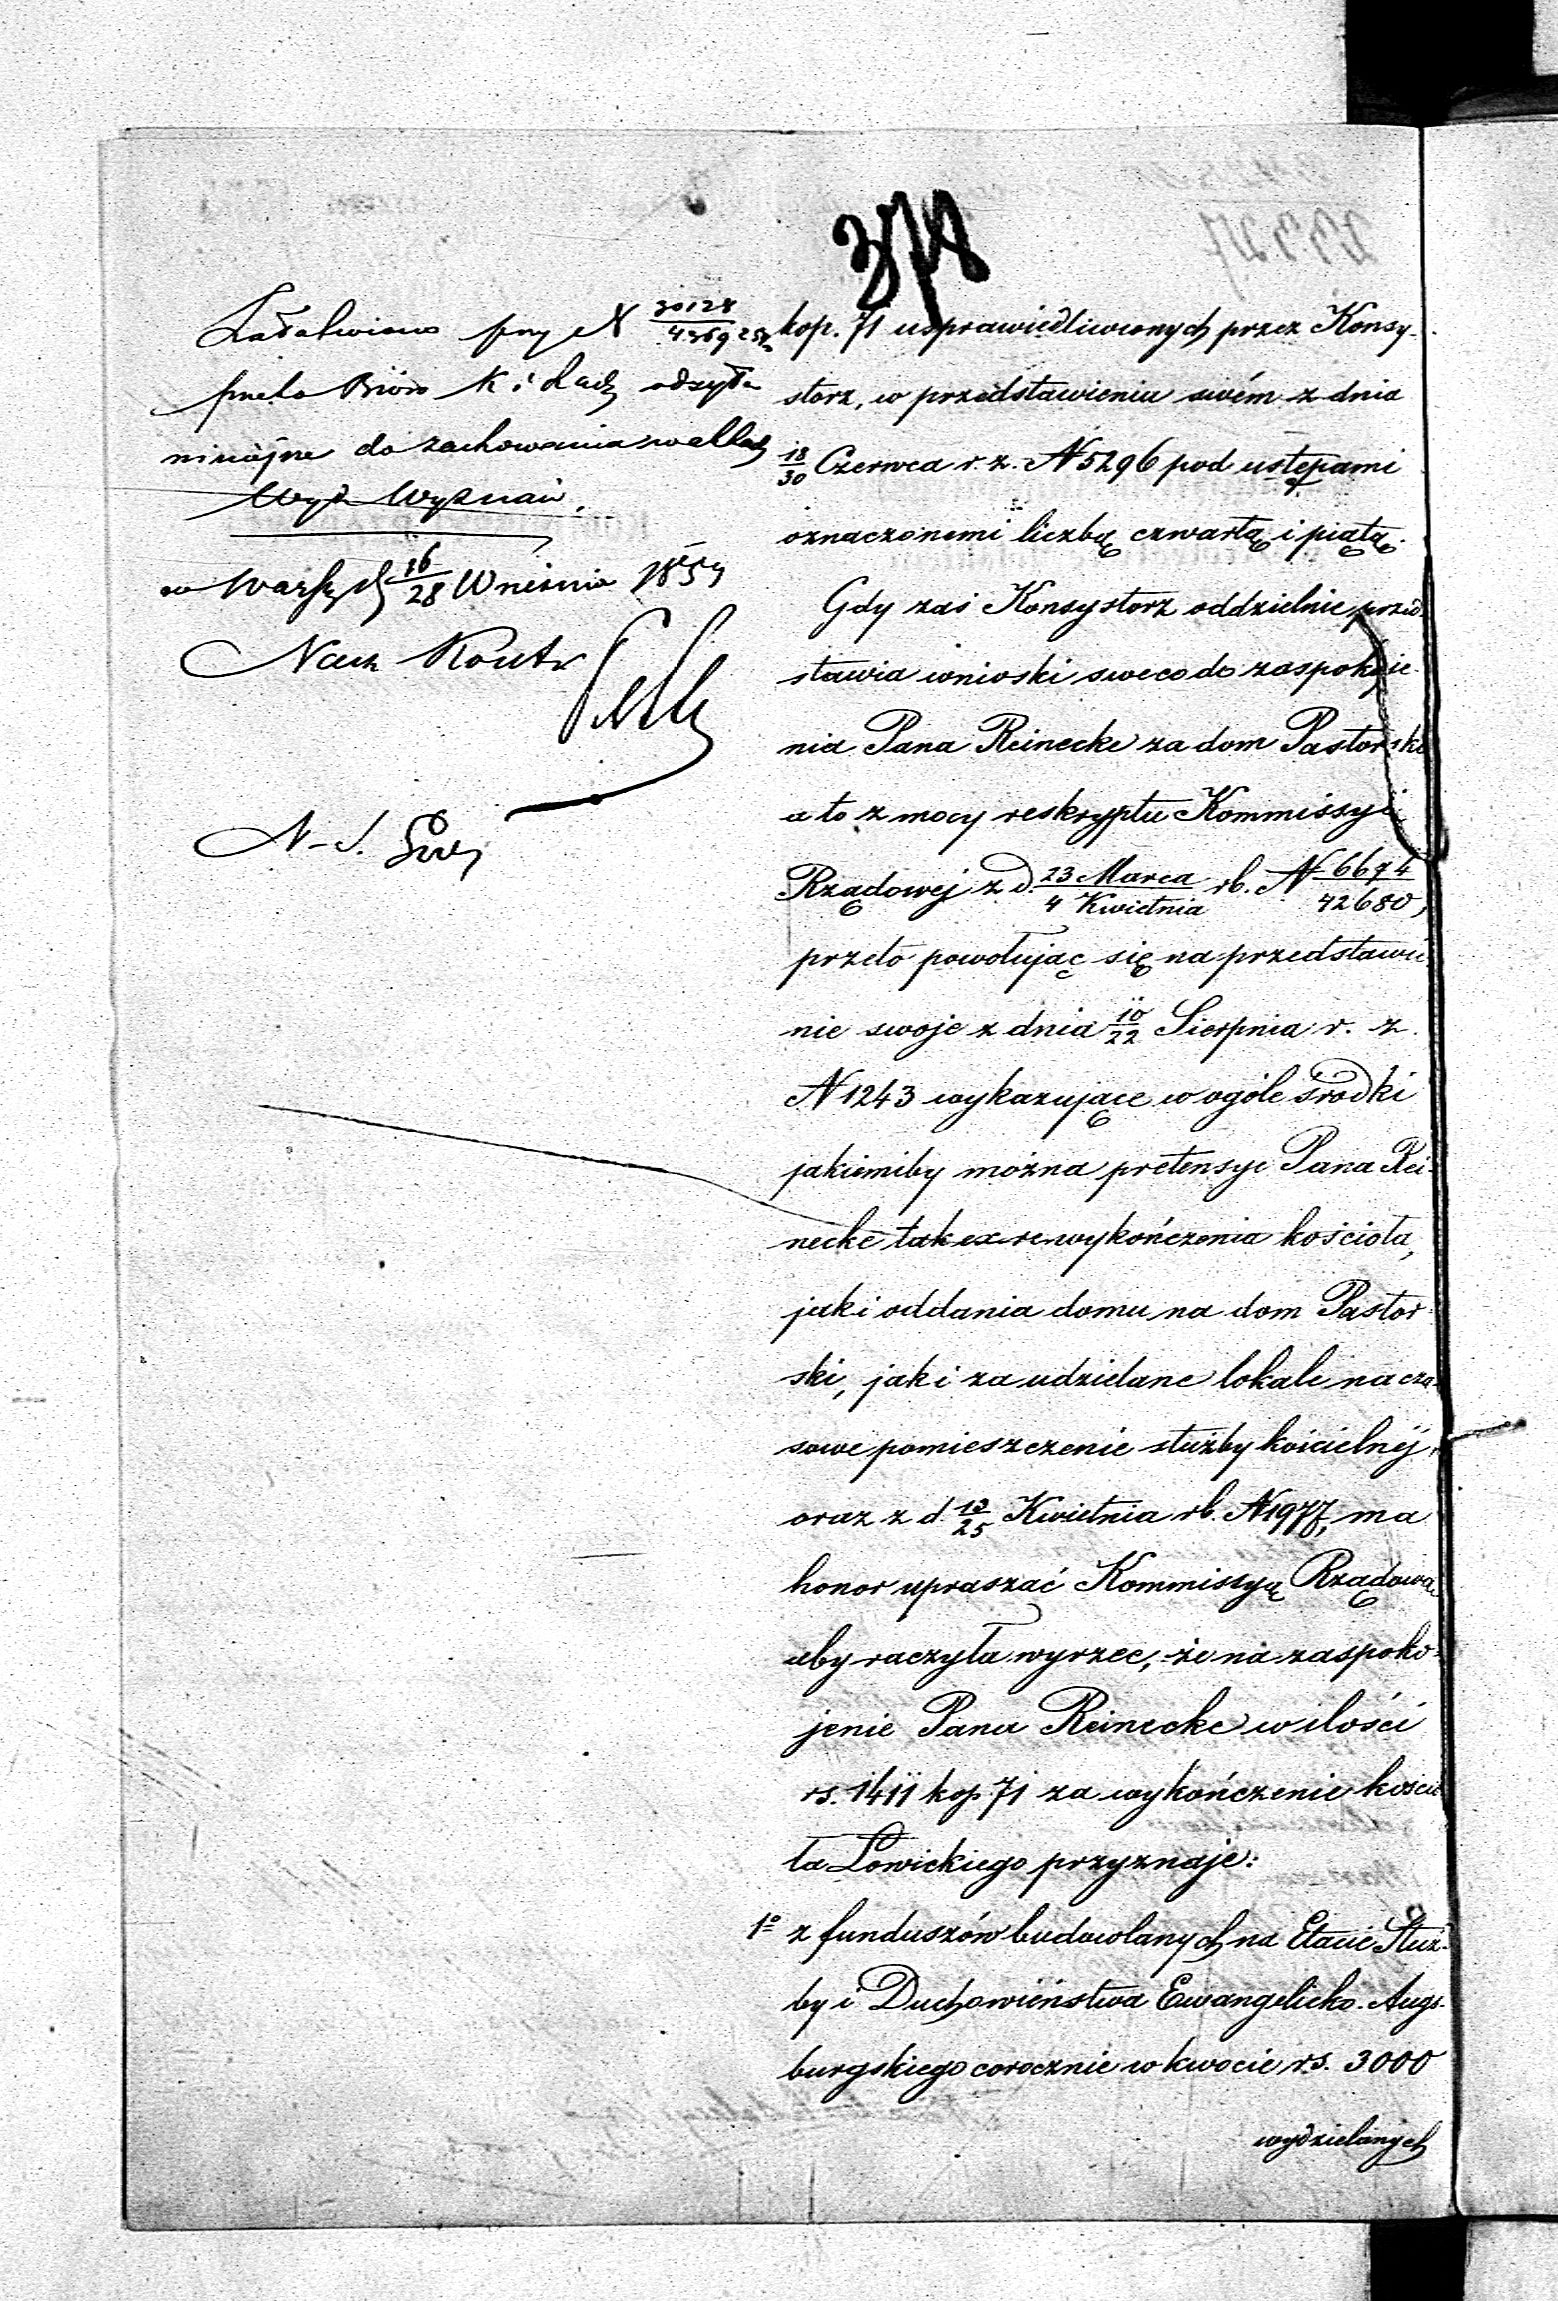 378
Załatwiono przy N 30128/4369 257
przeto Biōro K i Rach odsyła
niniejsze do zachowania w aktach
Wydz Wyznań.
w Warsz d 16/28 Września 1859
Nacz Kontr
N. S.
kop. 71 usprawiedliwionych przez Konsy-
storz, w przedstawieniu swém z dnia
18/30 Czerwca r. z. N 5296 pod ustępami
oznaczonemi liczbą czwartą i piątą.
Gdy zaś Konsystorz oddzielnie przed-
stawia wnioski swe co do zaspokoje-
nia Pana Reinecke za dom Pastorski
a to z mocy reskryptu Kommissyi
Rządowej z d. 23 Marca/4 Kwietnia rb. N 6674/42680,
przeto powołując się na przedstawie-
nie swoje z dnia 10/22 Sierpnia r. z.
N 1243 wykazujące w ogóle środki
jakiemiby można pretensye Pana Rei-
necke tak ex re wykończenia kościoła,
jak i oddania domu na dom Pastor-
ski, jak i za udzielane lokale na cza-
sowe pomieszczenie służby kościelnéj,
oraz z d. 13/25 Kwietnia rb. N 1977, ma
honor upraszać Kommissyą Rządową
aby raczyła wyrzec, że na zaspoko-
jenie Pana Reinecke w ilości
rs. 1411 kop 71 za wykończenie kościo-
ła Łowickiego przyznaje:
1º z funduszów budowlanych na Etacie Służ-
by i Duchowieństwa Ewangelicko-Augs-
burgskiego corocznie w kwocie rs. 3000
wydzielanych